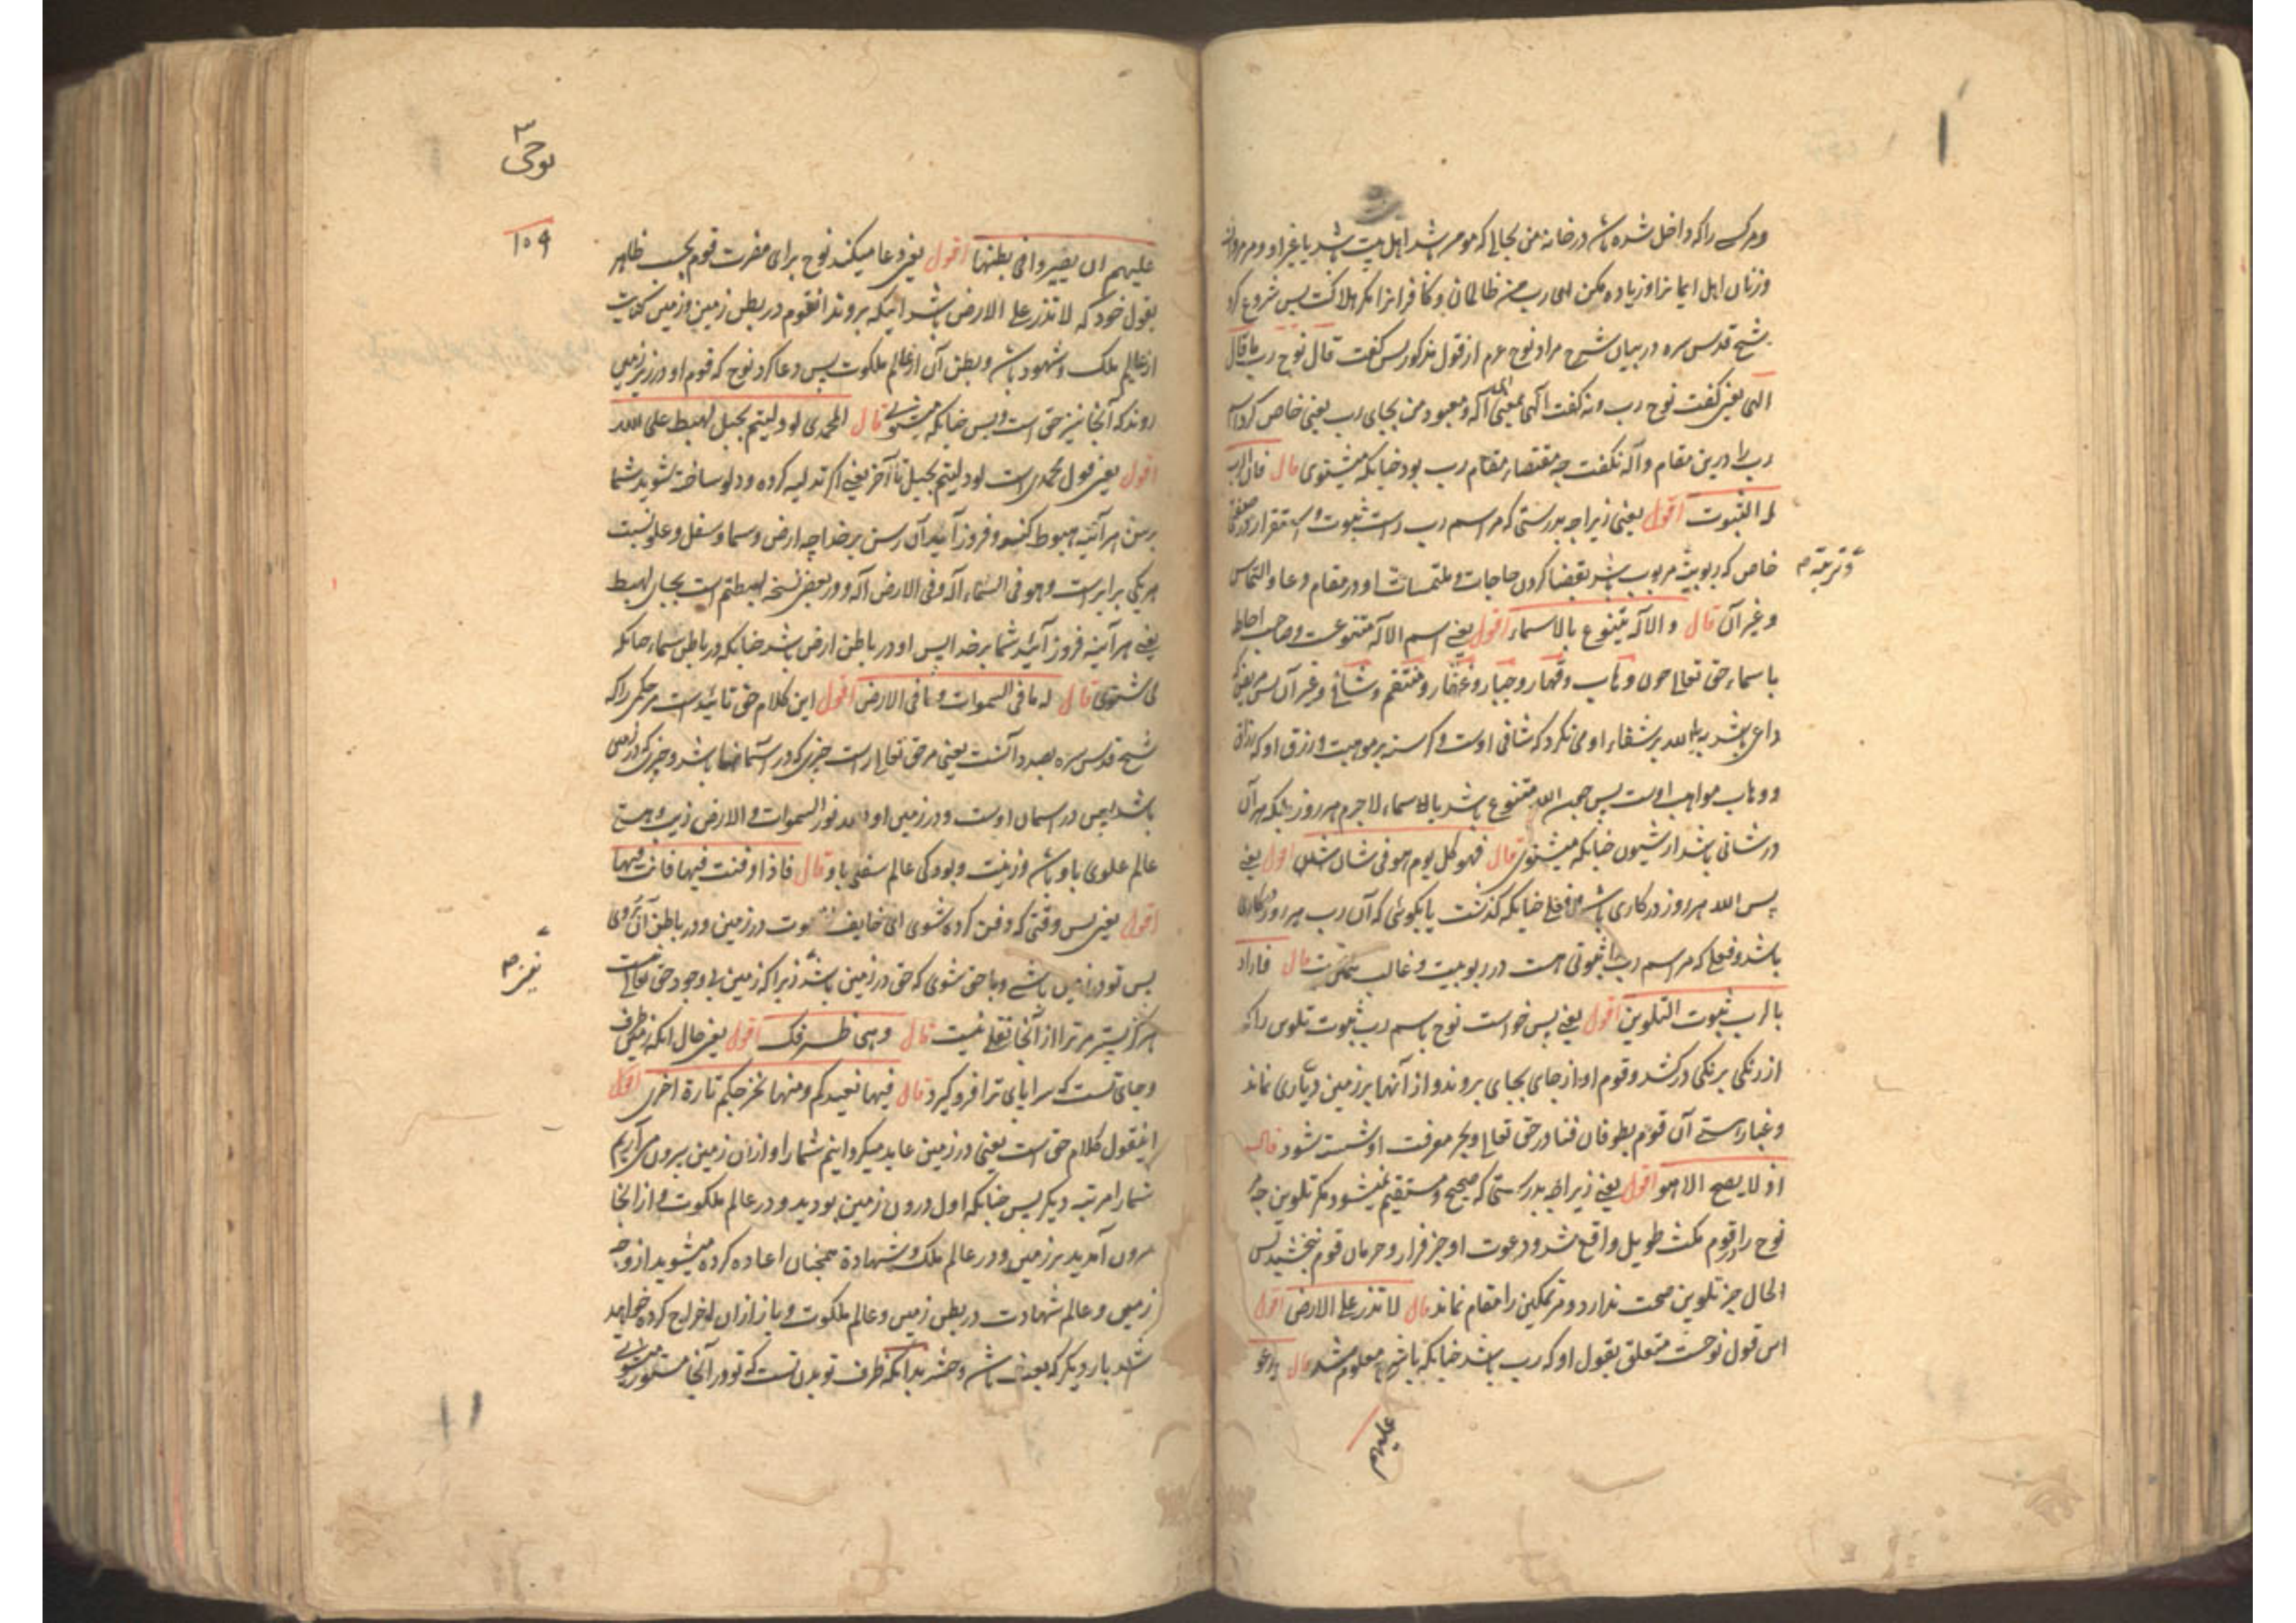 و هر کسے را که داخل شده باشد در خانهٔ من بجای که مومن باشد اهل بیت باشد یا غیر او و مر مردان
و زنان اهل ایمانرا و زیاده مکن ای رب من ظالمان و کافرانرا مکر هلاکت پس شروع کرد
شیخ قدس سره در بیان شرح مراد نوح عم از قول مذکور پس گفت قال نوح رب ما قال
الهی یعنی گفت نوح رب و نه گفت الهی بمعنی اله و معبود من بجای رب یعنی خاص کرد اسم
رب را درین مقام و اله نگفت چه مقتضاء مقام رب بود چنانکه میشنوی قال فان الرب
له الثبوت اقول یعنی زیرا چه بدرستی که مر اسم رب راست ثبوت و استقرار در صفة
خاص که ربوبیت مربوب باشد بقضا کردن حاجات و ملتمسات او در مقام دعا و التماس
و تربیة صح
و غیر آن قال و الاله یتنوع بالاسماء اقول یعنی اسم الاله متنوعست و صاحب احاطه
باسماء حق تعالی چون وهاب و قهار و جبار و غفار و منتقم و شافی و غیر آن پس مریض که
داعی باشد بیا الله بر شفاء او می نگرد که شافی اوست و گرسنه بر موهبت و رزق او که رزاق
و وهاب مواهب اوست پس چون الله متنوع باشد بالاسماء لاجرم هر روز بلکه هر آن
در شانی باشد از شیون چنانکه میشنوی قال فهو کل یوم هو فی شان اقول یعنی
پس الله هر روز در کاری باشد و فعلی چنانکه گذشت یا بگوئی که آن رب هر روز در کاری
باشد و فعلی که مر اسم رب را ثبوتی است در ربوبیت و غالب قال فاراد
بالرب ثبوت التلوین اقول یعنی پس خواست نوح باسم رب ثبوت تلوین را که
از رنگی برنگی در کشد و قوم او از جای بجای بروند و از آنها بر زمین دیاری نماند
و غبار هستی آن قوم بطوفان فنا در حق تعالی و بحر معرفت او شسته شود قال
اذ لا یصح الا هو اقول یعنی زیرا چه بدرستی که صحیح و مستقیم نمیشود مکر تلوین چه
نوح را در قوم مکث طویل واقع شد و دعوت او جز فرار و حرمان قوم نبخشید پس
الحال جز تلوین صحت ندارد و مر تمکین را مقام نماند قال لا تذر علی الارض اقول
این قول نوحست متعلق بقول او که رب باشد چنانکه معلوم شد قال یدعو
علیهم
نوحی
۱۵۴
علیهم ان یصیروا فی بطنها اقول یعنی دعا میکند نوح برای مضرت قوم بحسب ظاهر
بقول خود که لا تذر علی الارض باشد اینکه بروند انقوم در بطن زمین و زمین کنایت
از عالم ملک و شهود باشد و بطن آن از عالم ملکوت پس دعا کرد نوح که قوم او در زیر زمین
روند که آنجا نیز حق است و بس چنانکه میشنوی قال المحمدی لو دلیتم بحبل لهبط علی الله
اقول یعنی قول محمدی است لو دلیتم بحبل تا آخر یعنی اکر تدلیه کرده و دلو ساخته شوید شما
برسن هر آئینه هبوط کند و فرود آید آن رسن بر خدا چه ارض و سما و سفل و علو نسبت
هر یکی برابر است و هو فی السماء اله و فی الارض اله و در بعض نسخه لهبطتم است بجای لهبط
یعنی هر آینه فرود آئید شما بر خدا پس او در باطن ارض باشد چنانکه در باطن سماء چنانکه
می شنوی قال له ما فی السموات و ما فی الارض اقول این کلام حق تائید است مر حکمی را که
شیخ قدس سره بصدد آنست یعنی مر حق تعالی راست چیزی که در آسمانها باشد و چیزی که در زمین
باشد پس در اسمان اوست و در زمین او الله نور السموات و الارض زیب و هستی
عالم علوی باو باشد و زینت و بود کی عالم سفلی باو قال فاذا دفنت فیها فانت فیها
اقول یعنی پس وقتی که دفن کرده شوی ای خایف موت در زمین و در باطن آن روی
پس تو در زمین باشے و با حق شوی که حق در زمین باشد زیرا که زمین بے وجود حق تعالی
هرگز نیست مر ترا از آنجا نقلے نیست قال و هی ظرفک اقول یعنی حال آنکه زمین ظرف
و جای تست که سراپای ترا فرو گیرد قال فیها نعیدکم و منها نخرجکم تارة اخری اقول
اینقول کلام حق است یعنی در زمین عاید میکردانیم شما را و از ان زمین بیرون می آریم
شما را مرتبه دیگر پس چنانکه اول درون زمین بودید و در عالم ملکوت و از انجا
بیرون آمدید بر زمین و در عالم ملک و شهادة همچنان اعاده کرده میشوید از وجه
زمین و عالم شهادت در بطن زمین و عالم ملکوت و باز ازان اخراج کرده خواهید
شد بار دیگر که بعث باشد و حشر بدانکه ظرف تو بدن تست که تو در آنجا مستور میشوی